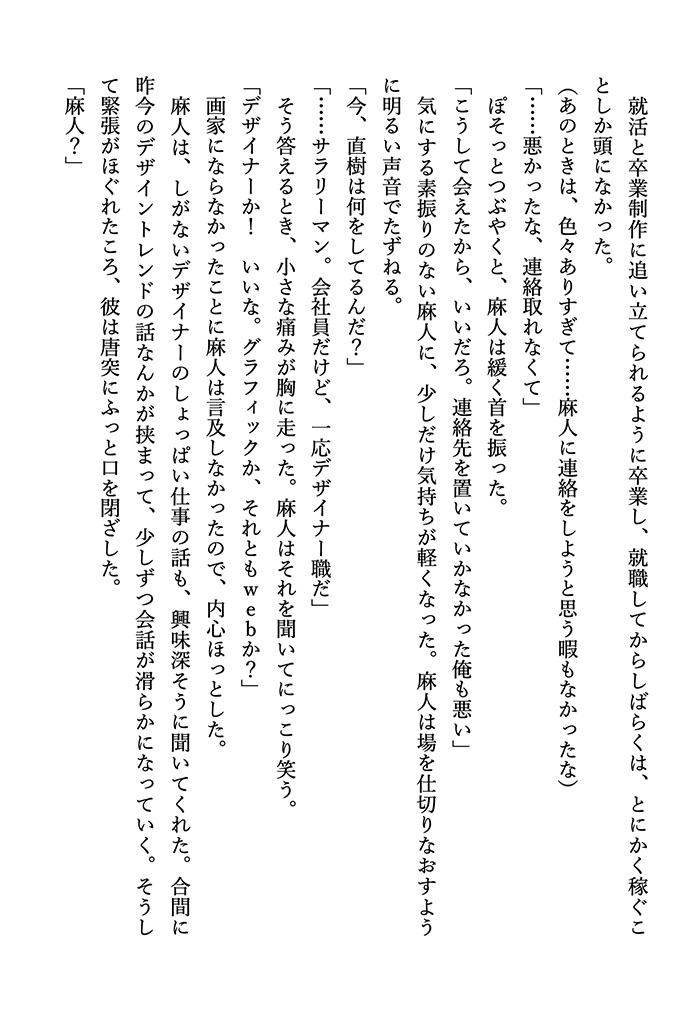 就活と卒業制作に追い立てられるように卒業し、就職してからしばらくは、とにかく稼ぐこ
としか頭になかった。
（あのときは、色々ありすぎて……麻人に連絡をしようと思う暇もなかったな）
「……悪かったな、連絡取れなくて」
　ぽそっとつぶやくと、麻人は緩く首を振った。
「こうして会えたから、いいだろ。連絡先を置いていかなかった俺も悪い」
　気にする素振りのない麻人に、少しだけ気持ちが軽くなった。麻人は場を仕切りなおすよう
に明るい声音でたずねる。
「今、直樹は何をしてるんだ？」
「……サラリーマン。会社員だけど、一応デザイナー職だ」
　そう答えるとき、小さな痛みが胸に走った。麻人はそれを聞いてにっこり笑う。
「デザイナーか！　いいな。グラフィックか、それともｗｅｂか？」
　画家にならなかったことに麻人は言及しなかったので、内心ほっとした。
　麻人は、しがないデザイナーのしょっぱい仕事の話も、興味深そうに聞いてくれた。合間に
昨今のデザイントレンドの話なんかが挟まって、少しずつ会話が滑らかになっていく。そうし
て緊張がほぐれたころ、彼は唐突にふっと口を閉ざした。
「麻人？」